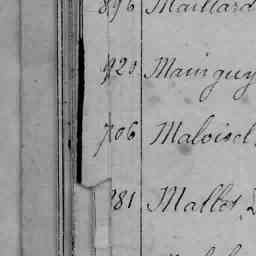 896 Maillard
920 Mainguy
706 Maloisel
881 Mallet,